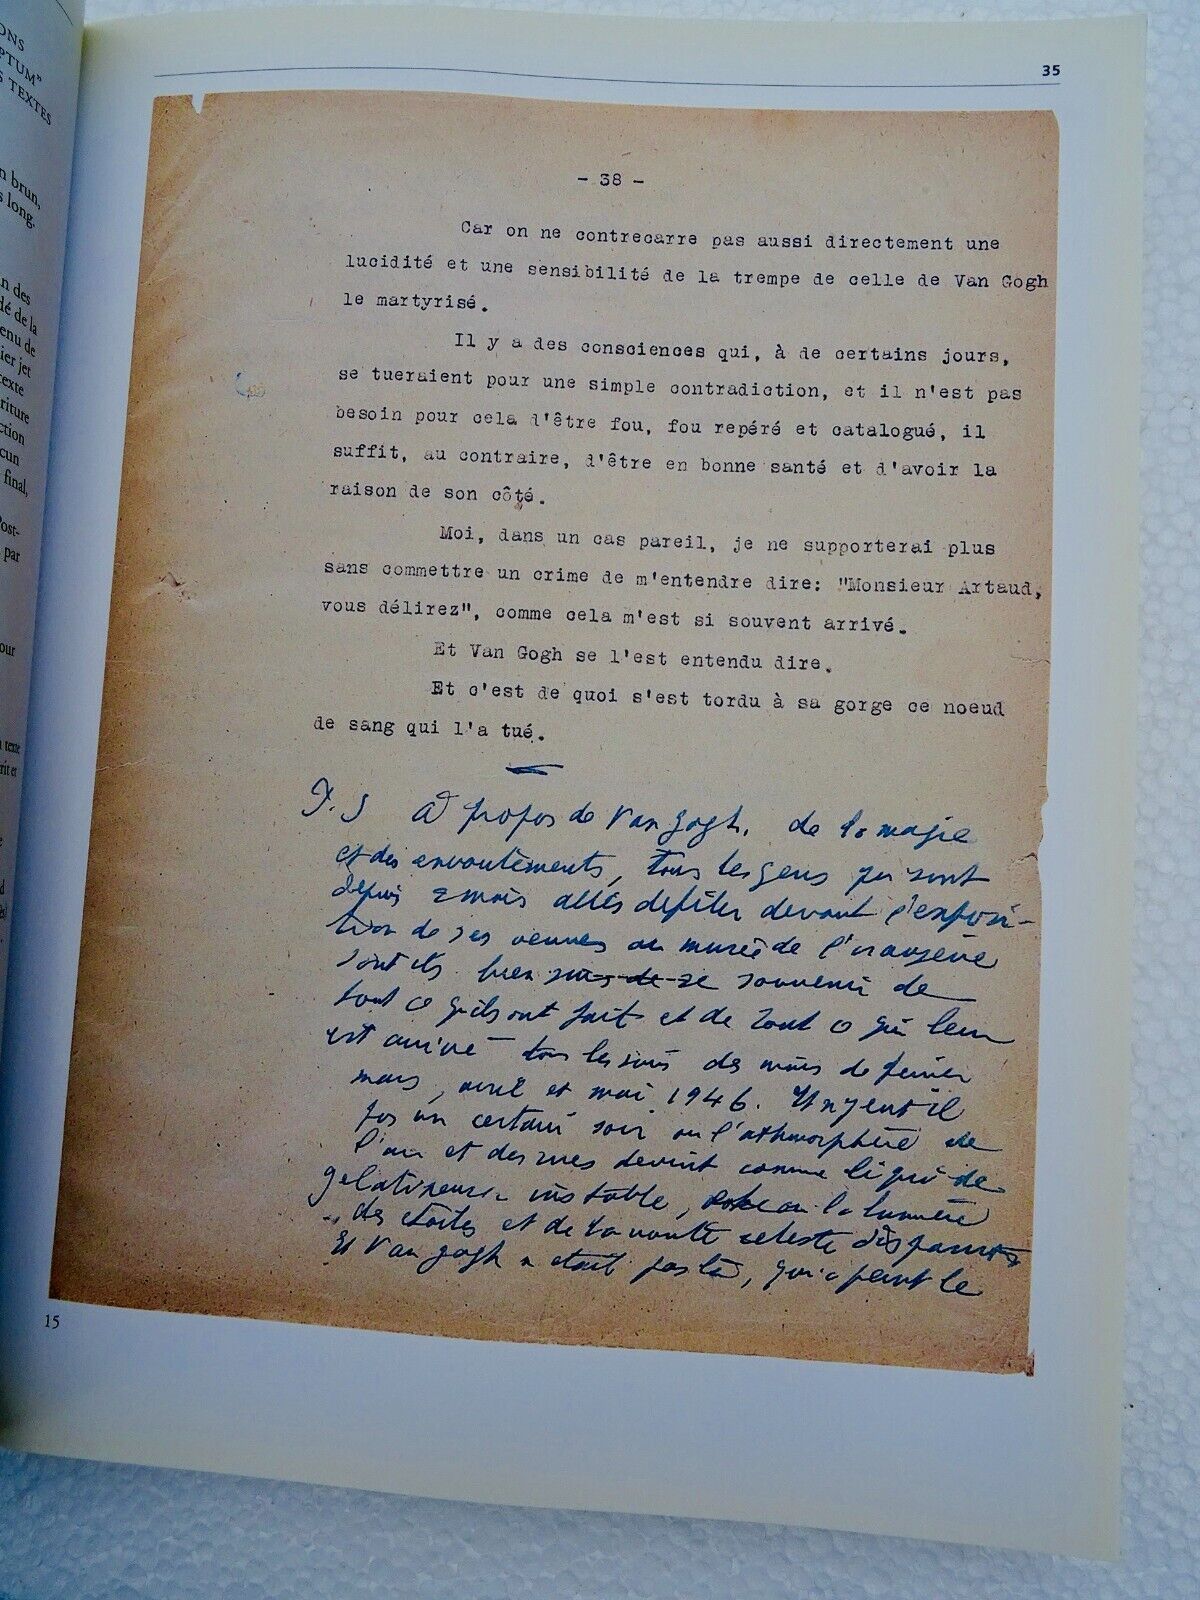 ONS
PTUM"
S TEXTES
n brun,
s long.
n des
dé de la
enu de
ier jet
texte
riture
ction
cun
final,
Post-
par
our
texte
rit et
35
- 38 -
Car on ne contrecarre pas aussi directement une
lucidité et une sensibilité de la trempe de celle de Van Gogh
le martyrisé.
Il y a des consciences qui, à de certains jours,
se tueraient pour une simple contradiction, et il n'est pas
besoin pour cela d'être fou, fou repéré et catalogué, il
suffit, au contraire, d'être en bonne santé et d'avoir la
raison de son côté.
Moi, dans un cas pareil, je ne supporterai plus
sans commettre un crime de m'entendre dire: "Monsieur Artaud,
vous délirez", comme cela m'est si souvent arrivé.
Et Van Gogh se l'est entendu dire.
Et c'est de quoi s'est tordu à sa gorge ce noeud
de sang qui l'a tué.
P.S A propos de Van Gogh, de la magie
et des envoutements, tous les gens qui sont
depuis 2 mois allés defiler devant l'exposi-
tion de ses œuvres au musée de l'orangerie
sont ils bien surs de se souvenir de
tout ce qu'ils ont fait et de tout ce qui leur
est arrivé tous les soirs des mois de fevrier
mars, avril et mai 1946. Et n'y eut il
pas un certain soir ou l'athmosphère de
l'air et des rues devint comme liquide
gelatineuse instable, et ou la lumière
des etoiles et de la voute celeste disparut
Et Van Gogh n'etait pas là, qui a peint le
15